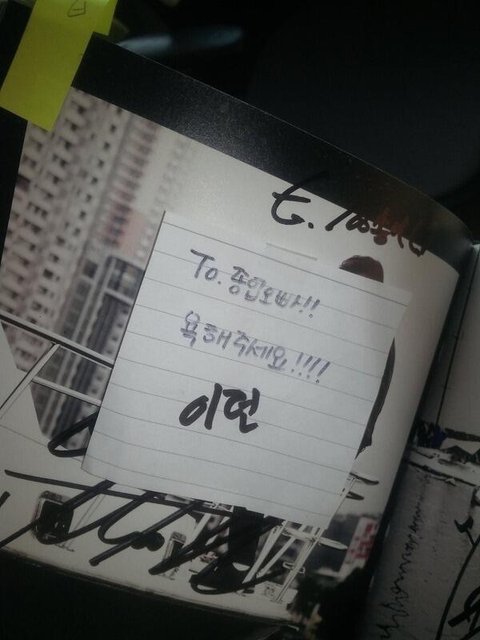 To. 종업오빠!!
욕해주세요!!!!
이년